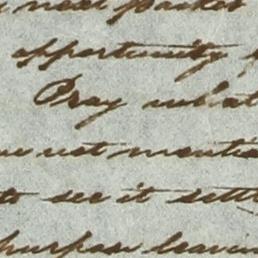 next packet
opportunity
Pray what
not mention
to see it settl
purpose leavin